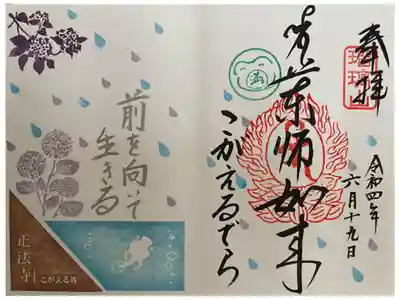 奉拝
薬師如来
こがえるでら
令和四年
六月十九日
満
前を向いて
生きる
正法寺
こがえる寺